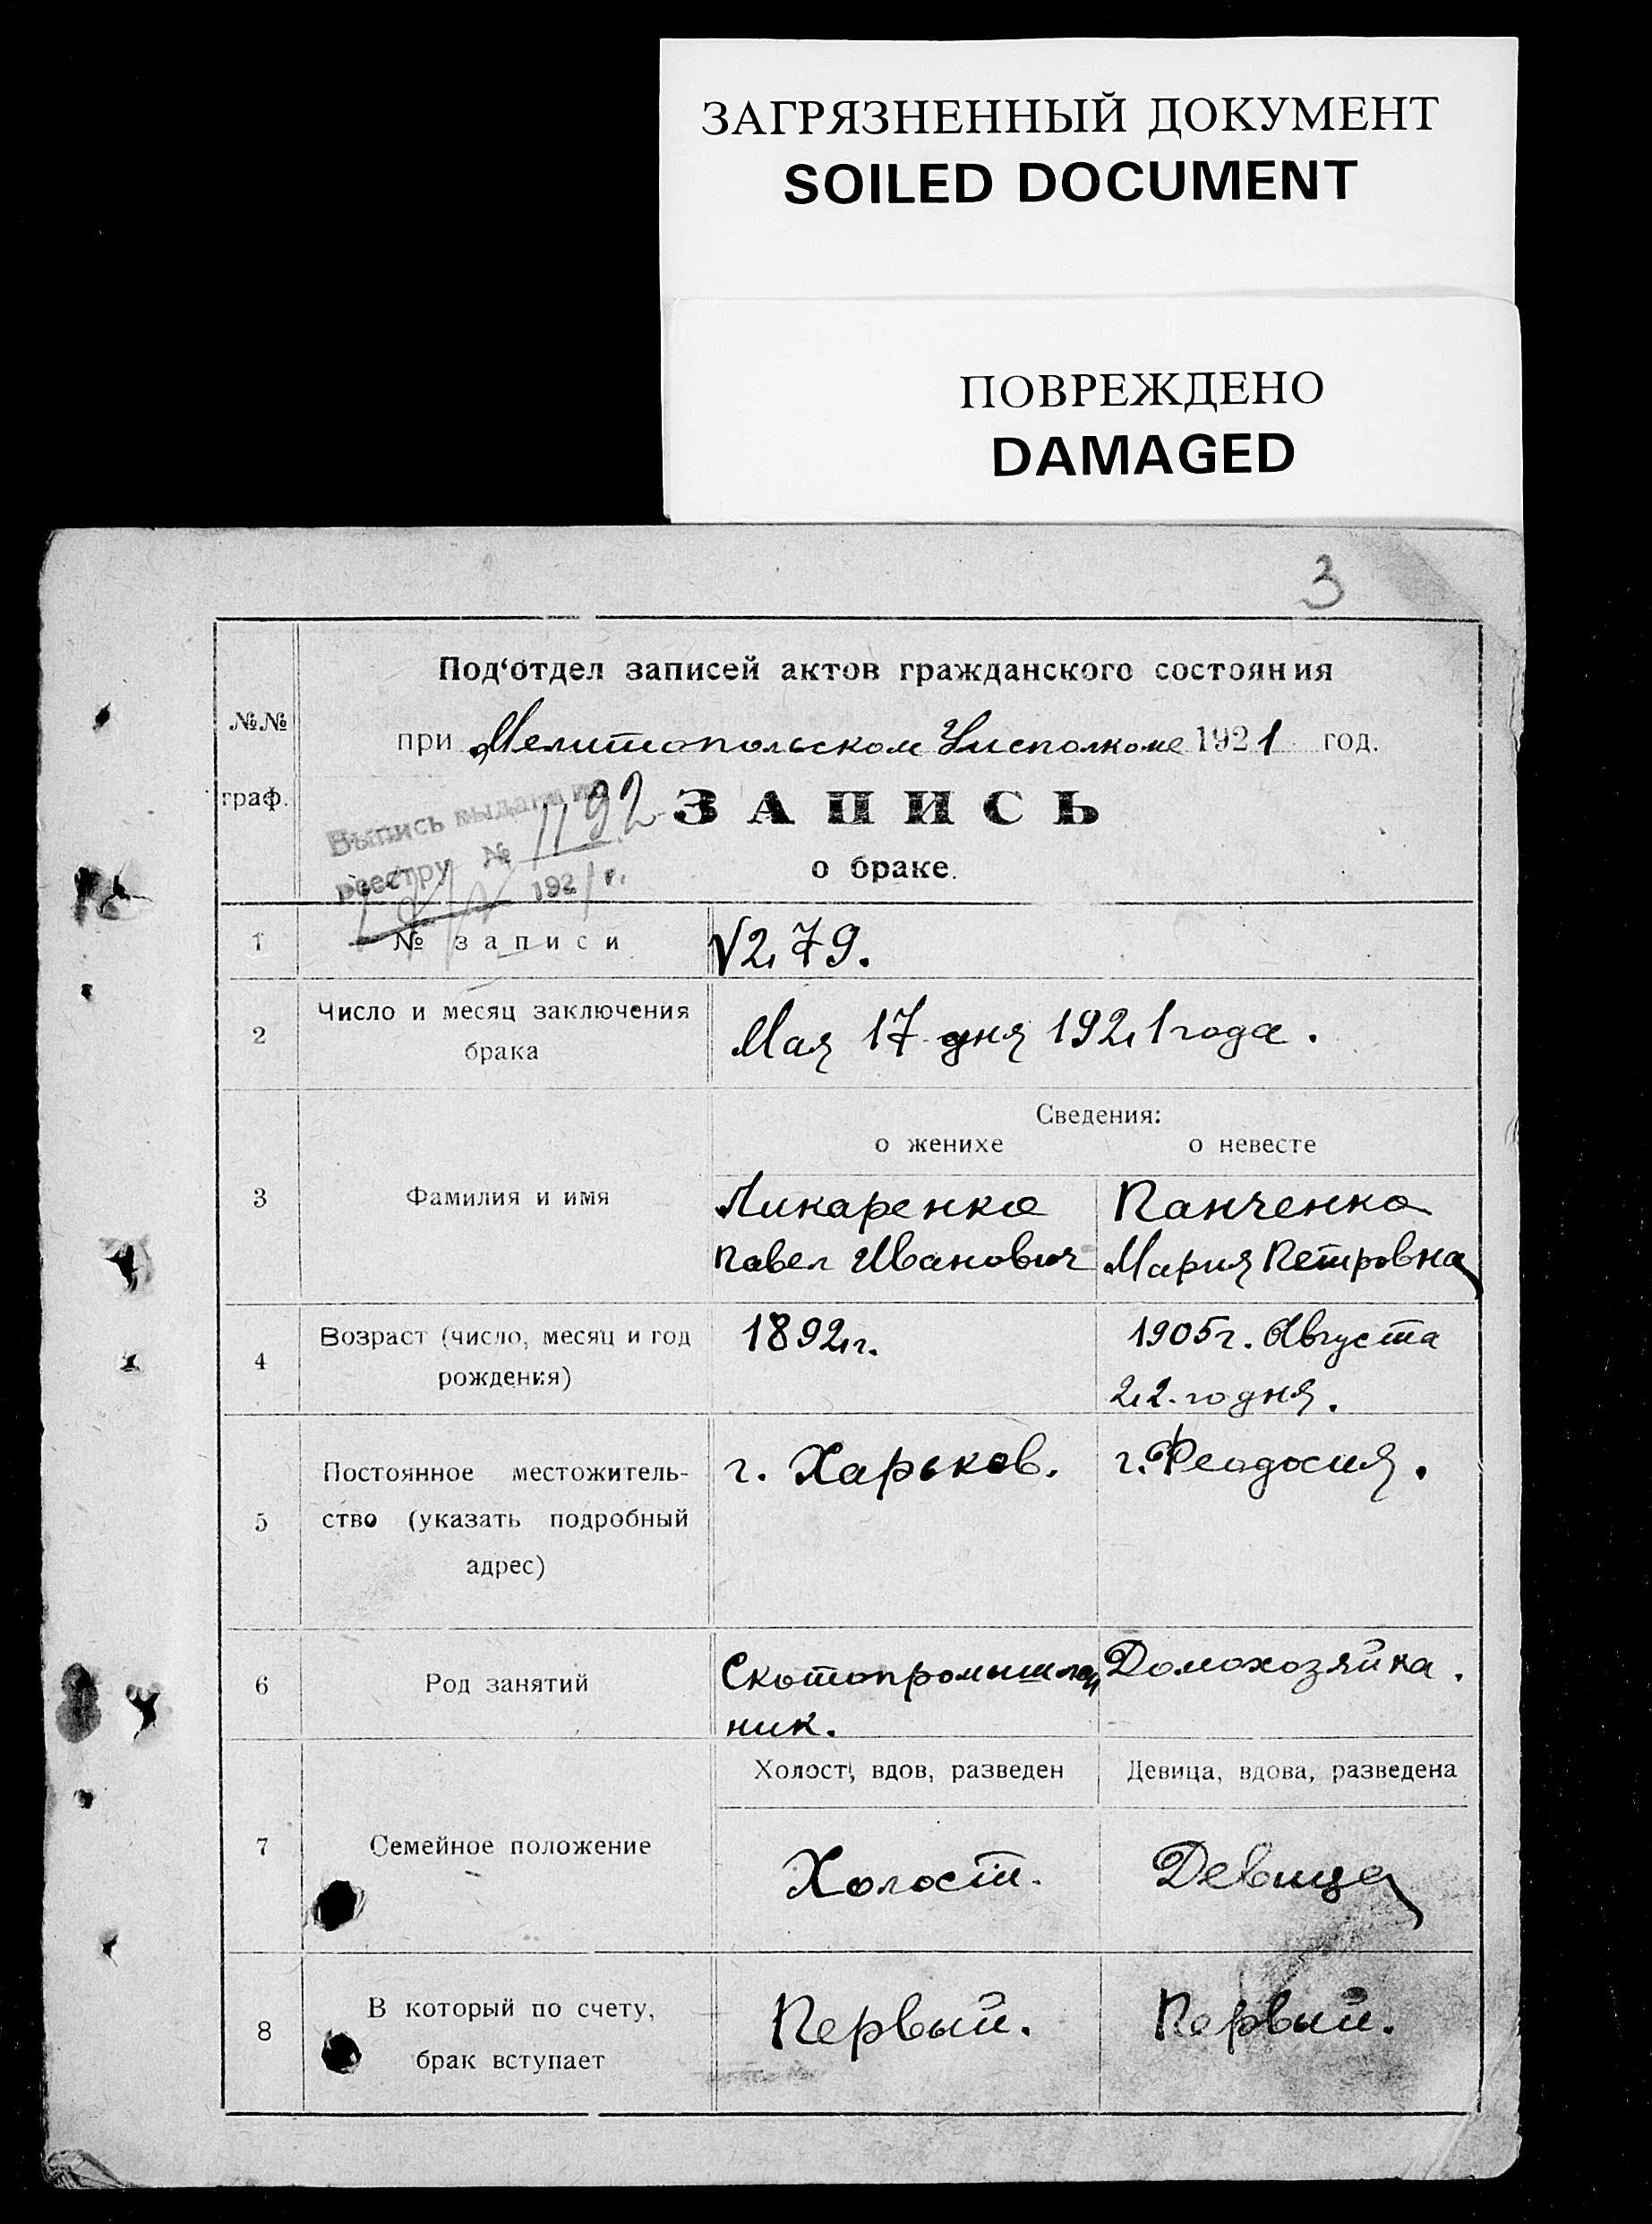 ЗАГРЯЗНЕННЫЙ ДОКУМЕНТ
SOILED DOCUMENT
ПОВРЕЖДЕНО
DAMAGED
3
Под‘отдел записей актов гражданского состояния
№№
граф.
при Мелитопольском Уисполкоме 1921 год.
ЗАПИСЬ
о браке.
Выпись выдана по
реестру № 1192
192 г.
1 № записи √279.
2 Число и месяц заключения
брака
Мая 17 дня 1921 года.
Сведения:
о женихе о невесте
3 Фамилия и имя
Ликаренко Панченко
Павел Иванович Мария Петровна
4 Возраст (число, месяц и год
рождения)
1892 г. 1905 г. Августа
22-го дня.
5 Постоянное местожитель-
ство (указать подробный
адрес)
г. Харьков. г. Феодосия.
6 Род занятий
Скотопромышлен Домохозяйка.
ник.
Холост, вдов, разведен Девица, вдова, разведена
7 Семейное положение
Холост. Девица
8 В который по счету,
брак вступает
Первый. Первый.